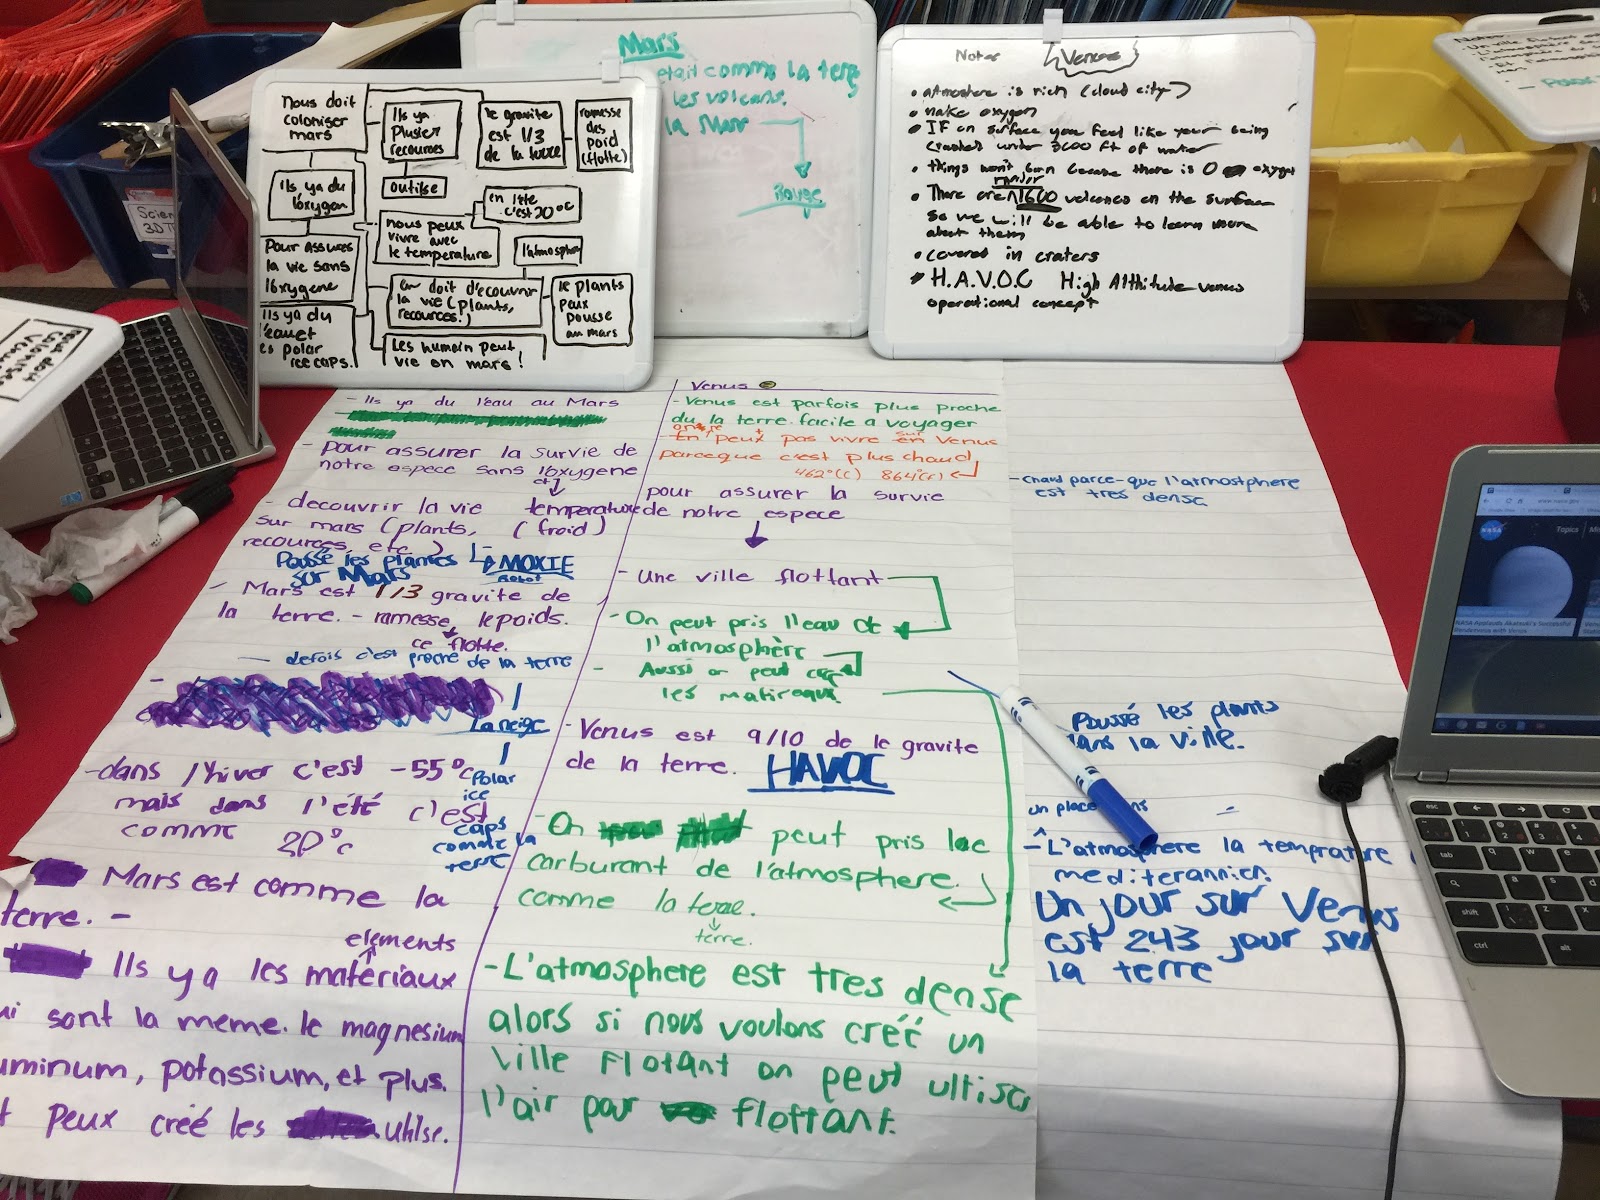 Nous doit
coloniser
mars
Ils ya
plusier
recources
le gravite
est 1/3
de la terre
ramesse
des
poid
(flotte)
Ils ya du
l'oxygen
outilse
en l'ete
c'est 20°C
nous peux
vivre avec
le temperature
l'atmosphe
Pour assures
la vie sans
l'oxygene
on doit d'ecouvrir
la vie (plants,
recources.)
le plants
peux
pousse
au mars
Ils ya du
l'eau et
polar
ice caps.
Les humain peut
vie en mars!
Mars
etait comme la terre
les volcans.
la Mars
Notes Venus
• atmosfere is rich (cloud city)
• make oxygen
• IF on surface you feel like your being
crushed under 3000 ft of water
• things won't burn because there is 0 oxygen
major
• There are 1600 volcanoes on the surface
so we will be able to learn more
about them
• covered in craters
• H.A.V.O.C High Altthitude venus
operational concept
Scien
3D T
- Ils ya du l'eau au Mars
- pour assurer la survie de
notre espece sans l'oxygene
et
- decouvrir la vie temperature
sur mars (plants, (froid)
recources, etc.)
Poussé les plantes MOXIE
sur Mars Robot
- Mars est 1/3 gravite de
la terre. - ramesse le poids.
ce flotte.
- defois c'est proche de la terre
La neige
- dans l'hiver c'est -55°c
mais dans l'été c'est
comme 20°c
Polar
ice
caps
comme la
terre
Mars est comme la
terre. -
elements
Ils ya les matériaux
sont la meme. le magnesium
uminum, potassium, et plus.
peux créé les utilse.
Venus
- Venus est parfois plus proche
du la terre. facile a voyager
- En peux pas vivre sur en Venus
parceque c'est plus chaud
462°(C) 864°(F)
pour assurer la survie
de notre espece
- Une ville flottant
- On peut pris l'eau de
l'atmosphère
- Aussi on peut cree
les matireaux
- Venus est 9/10 de le gravite
de la terre. HAVOC
- On peut pris lac
carburant de l'atmosphere.
comme la
terre.
- L'atmosphere est tres dense
alors si nous voulons créé un
ville flotant on peut ultise
l'air pour flottant.
- chaud parce-que l'atmostphere
est tres dense
Poussé les plants
dans la ville.
un place dans
- L'atmosphere la temprature
mediterannien
Un jour sur Venus
est 243 jour sur
la terre
NASA
Topics
esc
tab
shift
ctrl
alt